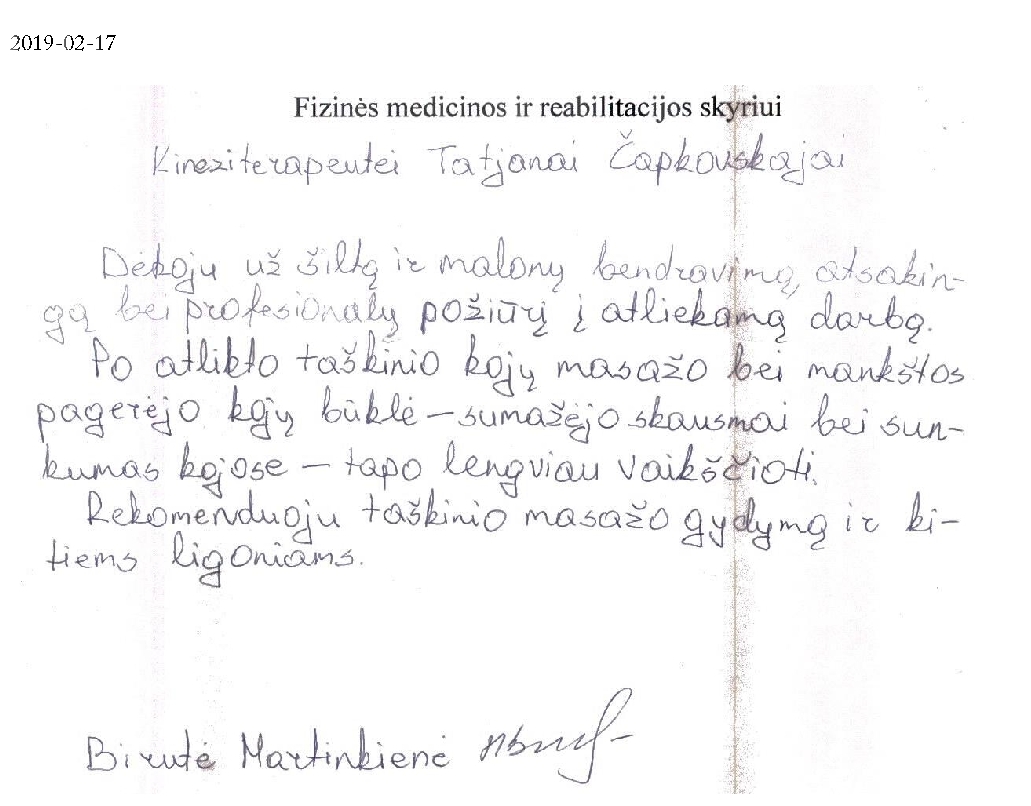 2019-02-17
Fizinės medicinos ir reabilitacijos skyriui
Kineziterapeutei Tatjanai Čapkovskajai
Dėkoju už šiltą ir malonų bendravimą, atsakin-
gą bei profesionalų požiūrį į atliekamą darbą.
Po atlikto taškinio kojų masažo bei mankštos
pagerėjo kojų būklė – sumažėjo skausmai bei sun-
kumas kojose – tapo lengviau vaikščioti.
Rekomenduoju taškinio masažo gydymą ir ki-
tiems ligoniams.
Birutė Martinkienė